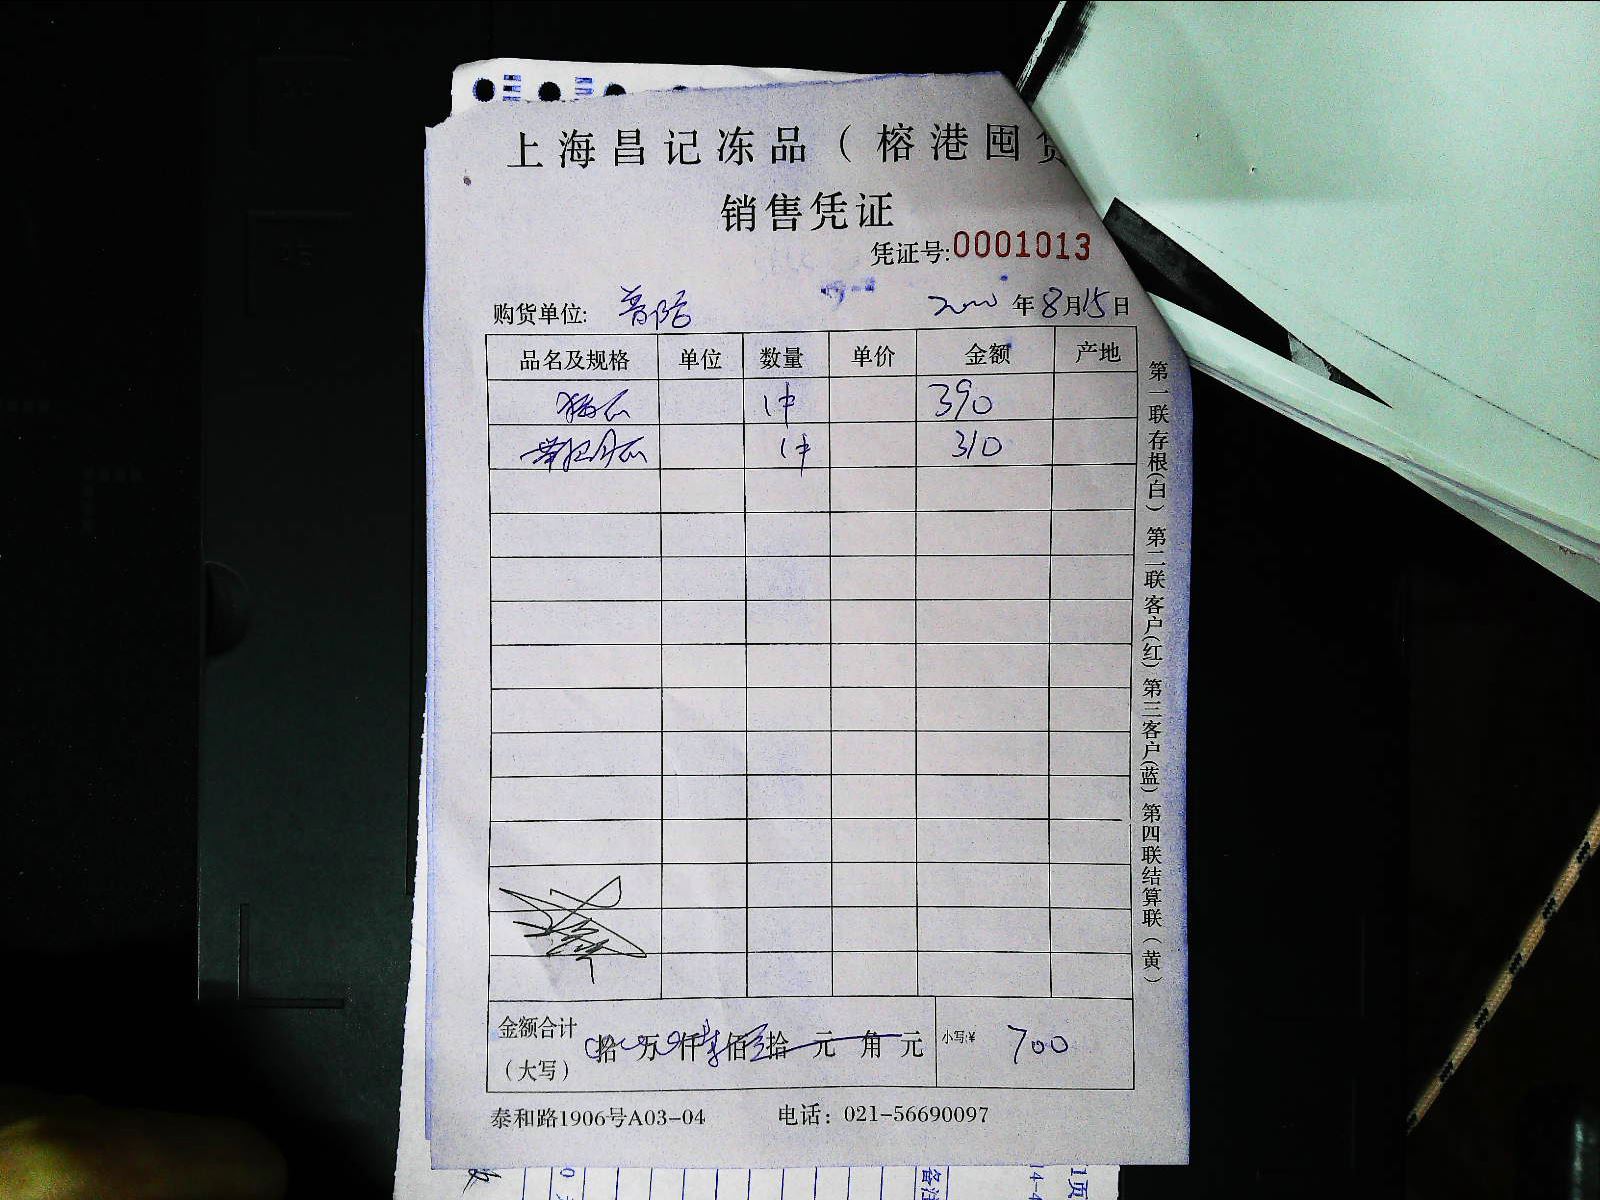 上海昌记冻品（榕港囤货
销售凭证
凭证号:0001013
购货单位: 普陀 年8月15日
品名及规格 单位 数量 单价 金额 产地
1件 390
1件 310
金额合计（大写） 拾 万 仟 佰 拾 元 角 元 小写:¥ 700
泰和路1906号A03-04 电话：021-56690097
第一联存根(白) 第二联客户(红) 第三客户(蓝) 第四联结算联(黄)
备注